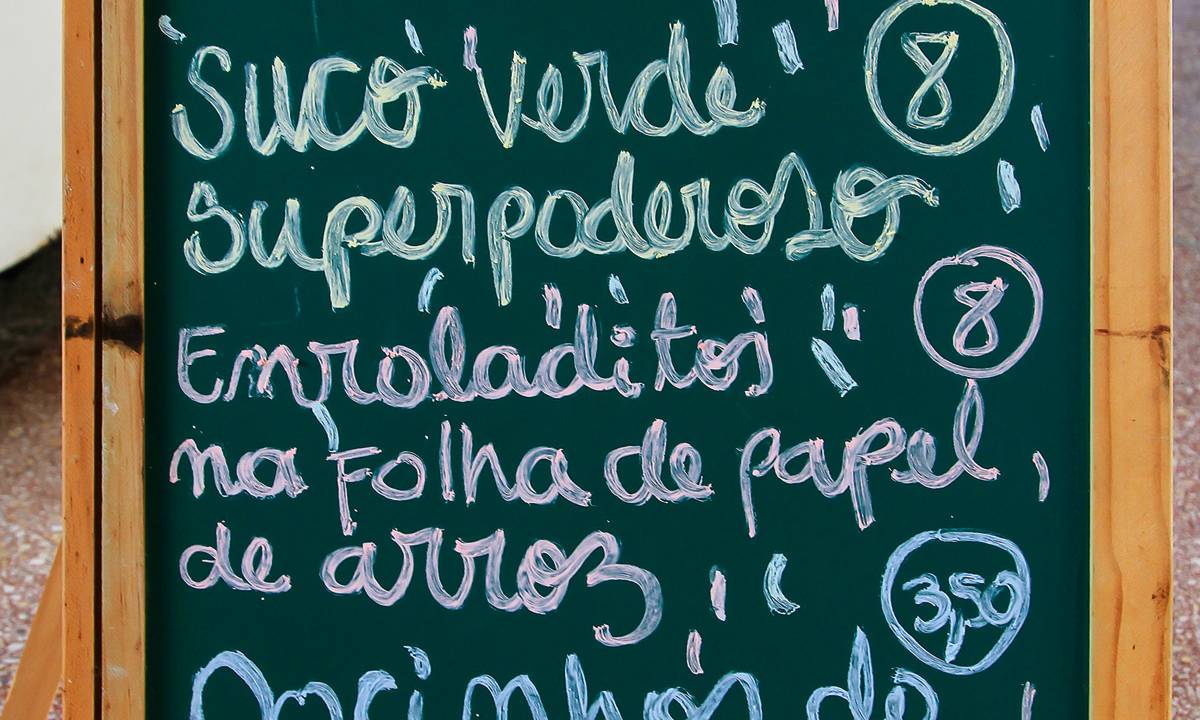 Suco verde 8
superpoderoso
Enroladitos 8
na folha de papel
de arroz
3,50
de